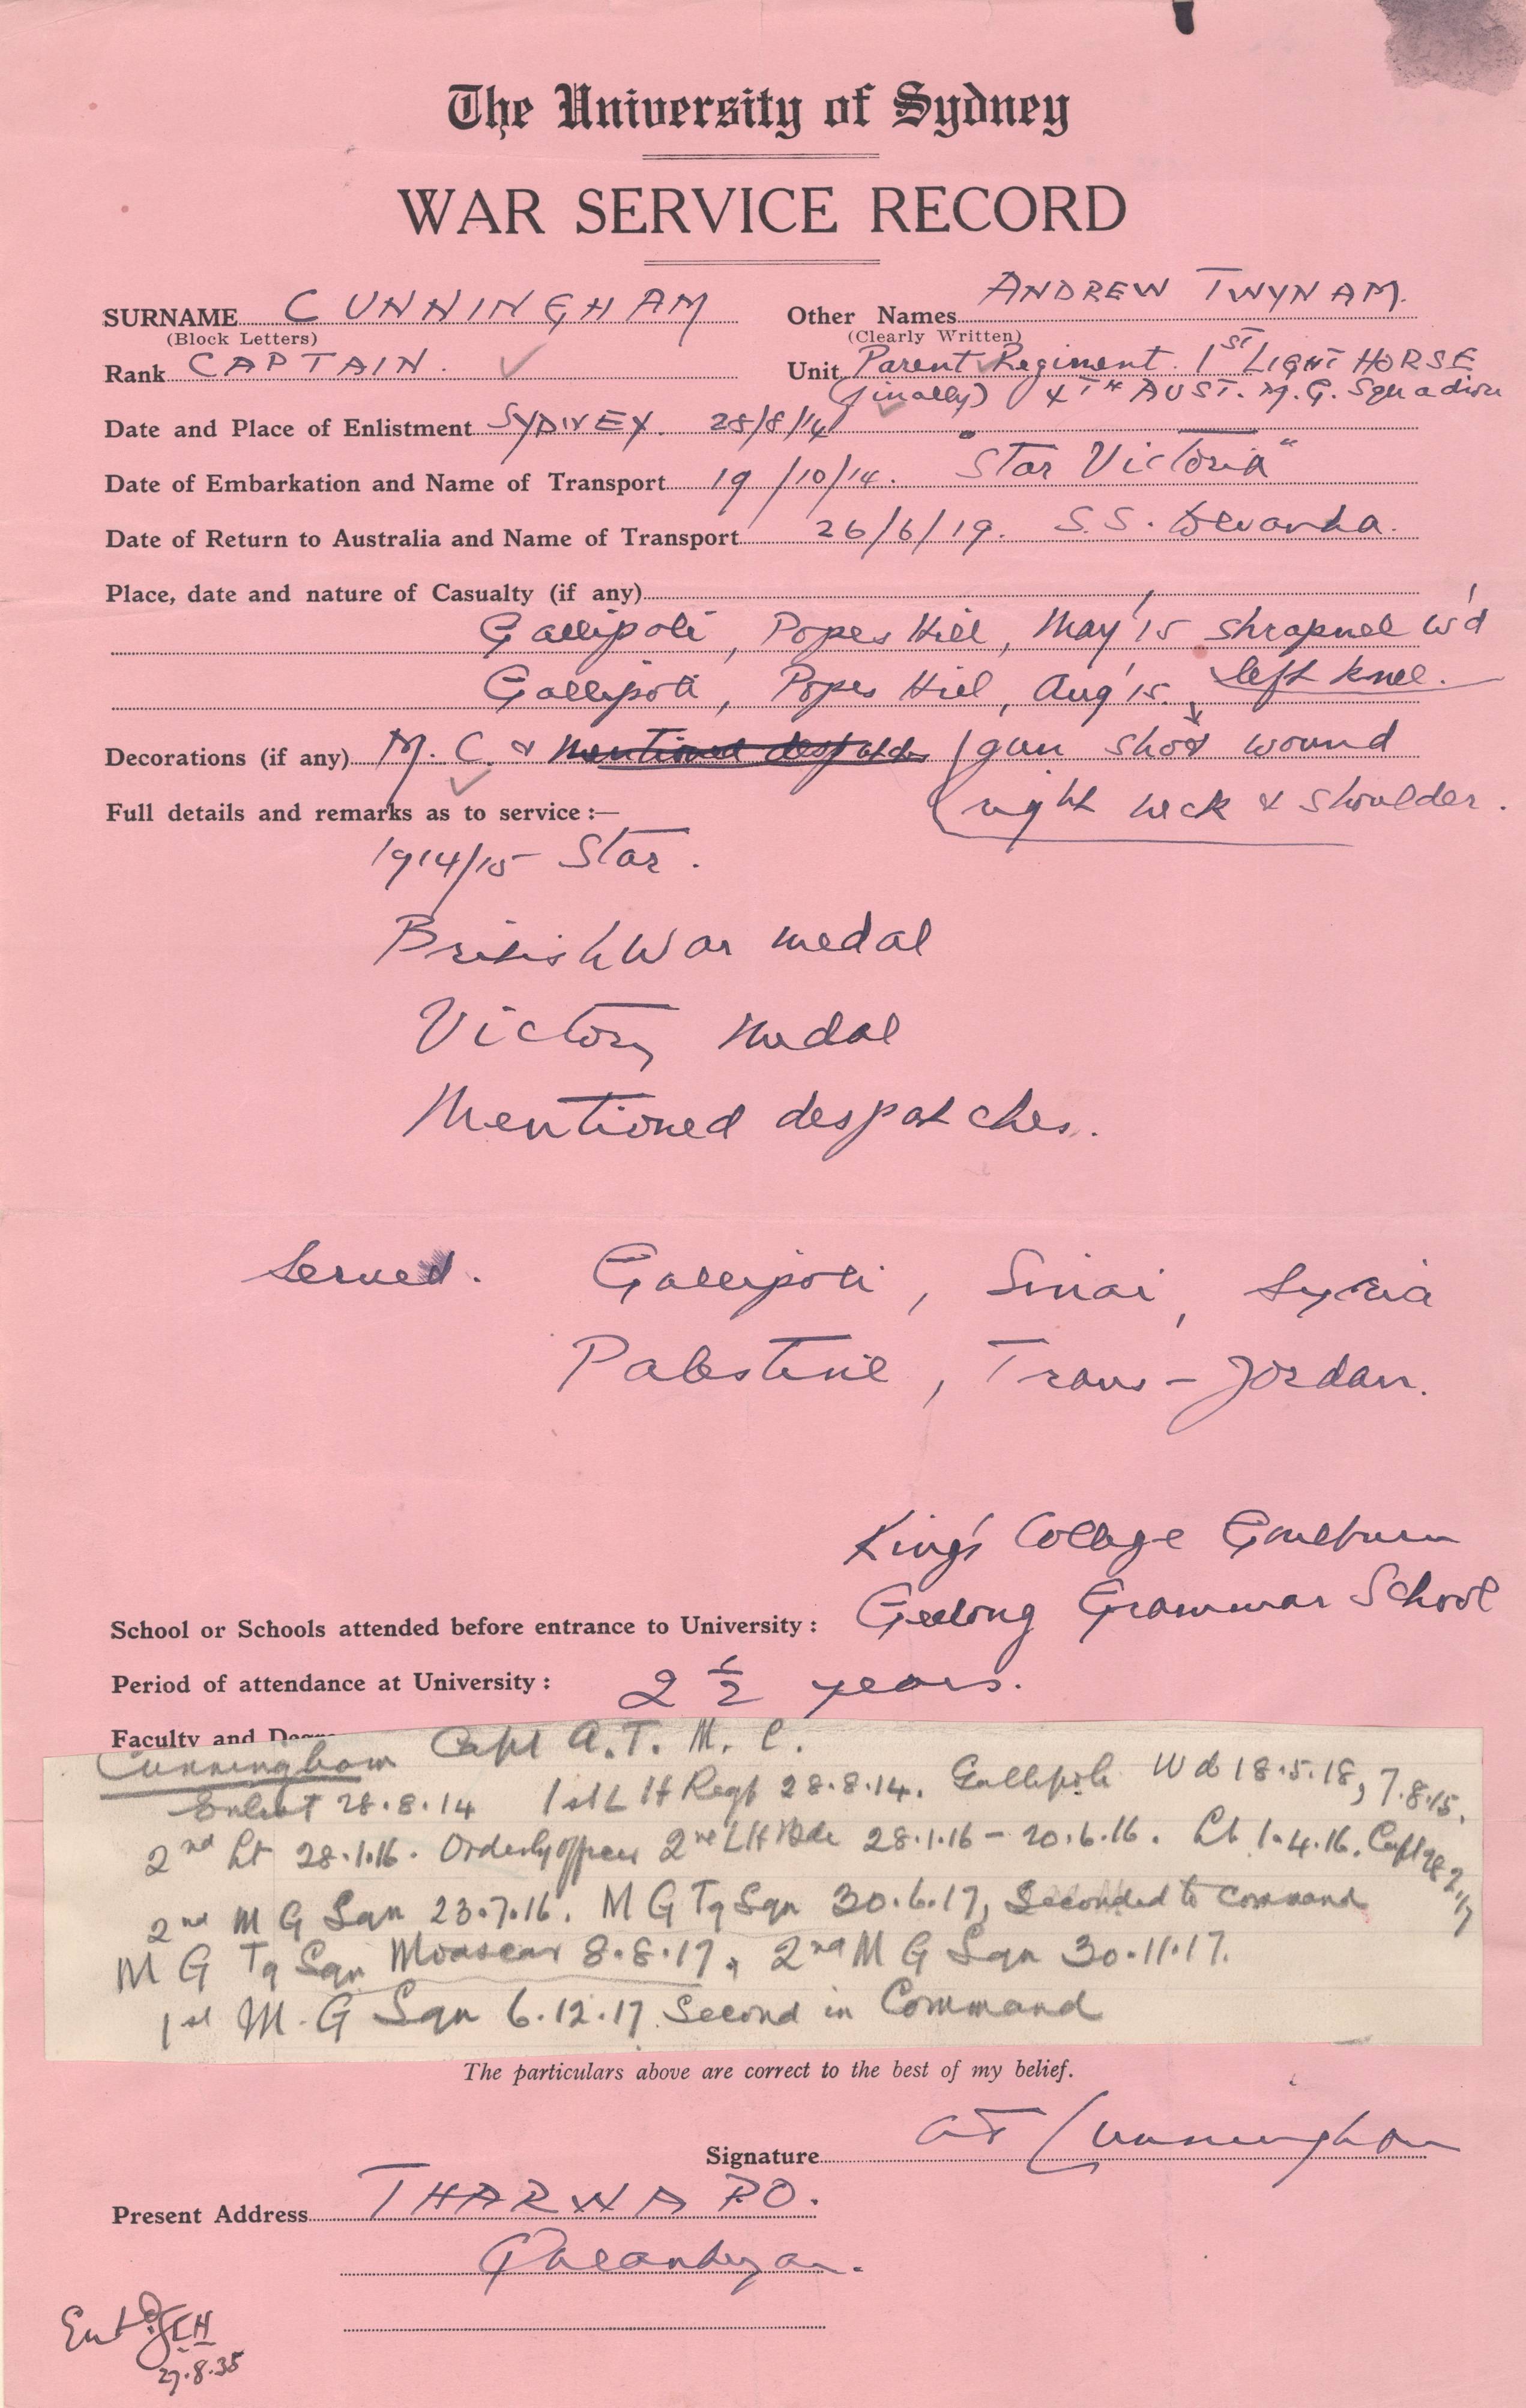 The University of Sydney
WAR SERVICE RECORD
SURNAME CUNNINGHAM Other Names ANDREW TWYNAM.
(Block Letters) (Clearly Written)
Rank CAPTAIN. Unit Parent Regiment. 1ST LIGHT HORSE
(finally) 4TH AUST. M.G. Squadron
Date and Place of Enlistment SYDNEY. 28/8/14
Date of Embarkation and Name of Transport 19/10/14. "Star Victoria"
Date of Return to Australia and Name of Transport 26/6/19. S.S. Devanha.
Place, date and nature of Casualty (if any)
Gallipoli, Popes Hill, May '15 shrapnel w'd
Gallipoli, Popes Hill, Aug '15. left knee.
Decorations (if any) M.C. & Mentioned despatches gun shot wound
right neck & shoulder.
Full details and remarks as to service:—
1914/15 Star.
British War medal
Victory Medal
Mentioned despatches.
Served. Gallipoli, Sinai, Syria
Palestine, Trans-Jordan.
King's College Goulburn
School or Schools attended before entrance to University: Geelong Grammar School
Period of attendance at University: 2 1/2 years.
Faculty and
Cunningham Capt A.T. M.C.
Enlist 28.8.14 1st L H Regt 28.8.14. Gallipoli Wd 18.5.18, 7.8.15.
2nd Lt 28.1.16. Orderly officer 2nd LH Bde 28.1.16 - 20.6.16. Lt 1.4.16. Capt 28.2.17
2nd M G Sqn 23.7.16. M G Tg Sqn 30.6.17, Seconded to Command
M G Tg Sqn Moascar 8.8.17, 2nd M G Sqn 30.11.17.
1st M.G Sqn 6.12.17. Second in Command
The particulars above are correct to the best of my belief.
Signature AT Cunningham
Present Address THARWA P.O.
Queanbeyan.
Entd
27.8.35